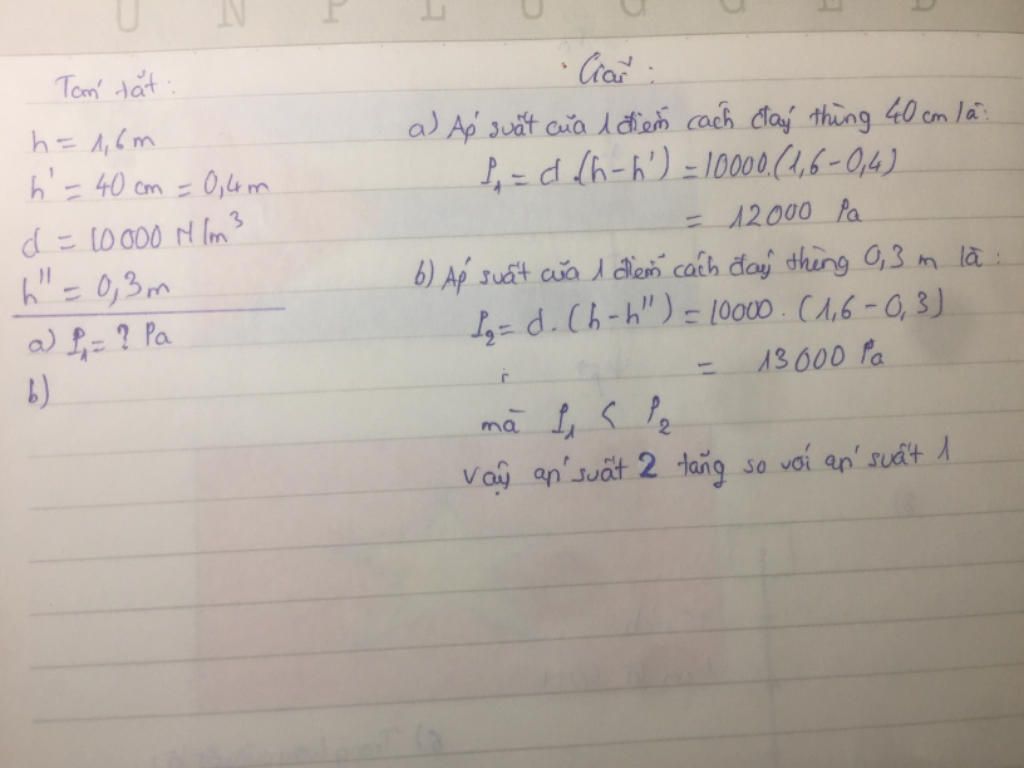 UNPLUGGED
Tóm tắt:
h = 1,6m
h' = 40 cm = 0,4m
d = 10000 N/m³
h'' = 0,3m
a) P₁ = ? Pa
b)
Giải:
a) Áp suất của 1 điểm cách đáy thùng 40 cm là:
P₁ = d.(h-h') = 10000.(1,6-0,4)
= 12000 Pa
b) Áp suất của 1 điểm cách đáy thùng 0,3 m là:
P₂ = d.(h-h'') = 10000.(1,6-0,3)
= 13000 Pa
mà P₁ < P₂
Vậy áp suất 2 tăng so với áp suất 1